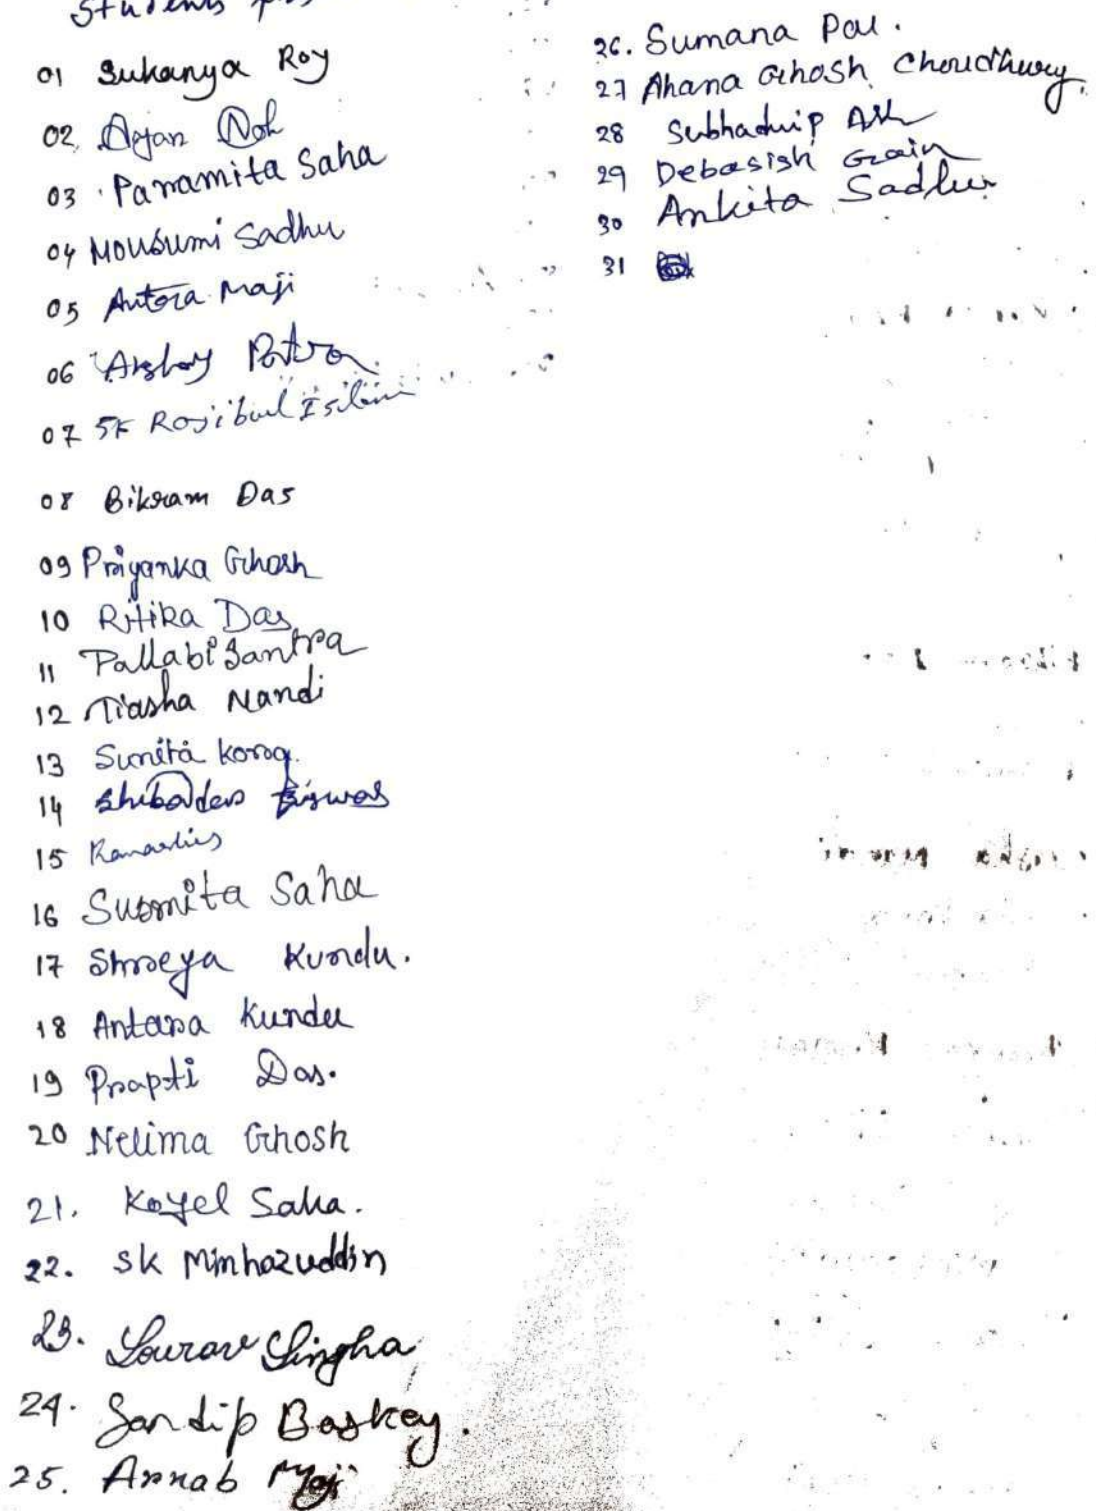 Students
01 Sukanya Roy
02.
03 Paramita Saha
04 Mousumi Sadhu
05 Antara Maji
06 Akshay Patra
07 SK Rojibul Islam
08 Bikram Das
09 Priyanka Ghosh
10 Ritika Das
11 Pallabi Santra
12 Tiasha Nandi
13 Sunita
14 Biswas
15
16 Susmita Saha
17 Shreya Kundu.
18 Antara Kundu
19 Prapti Das.
20 Nelima Ghosh
21. Koyel Saha.
22. SK Minhazuddin
23. Sourav Singha
24. Sandip Baskey.
25. Arnab Maji
26. Sumana Pal.
27 Ahana Ghosh Choudhury.
28 Subhadip Ash
29 Debasish Grain
30 Ankita Sadhu
31